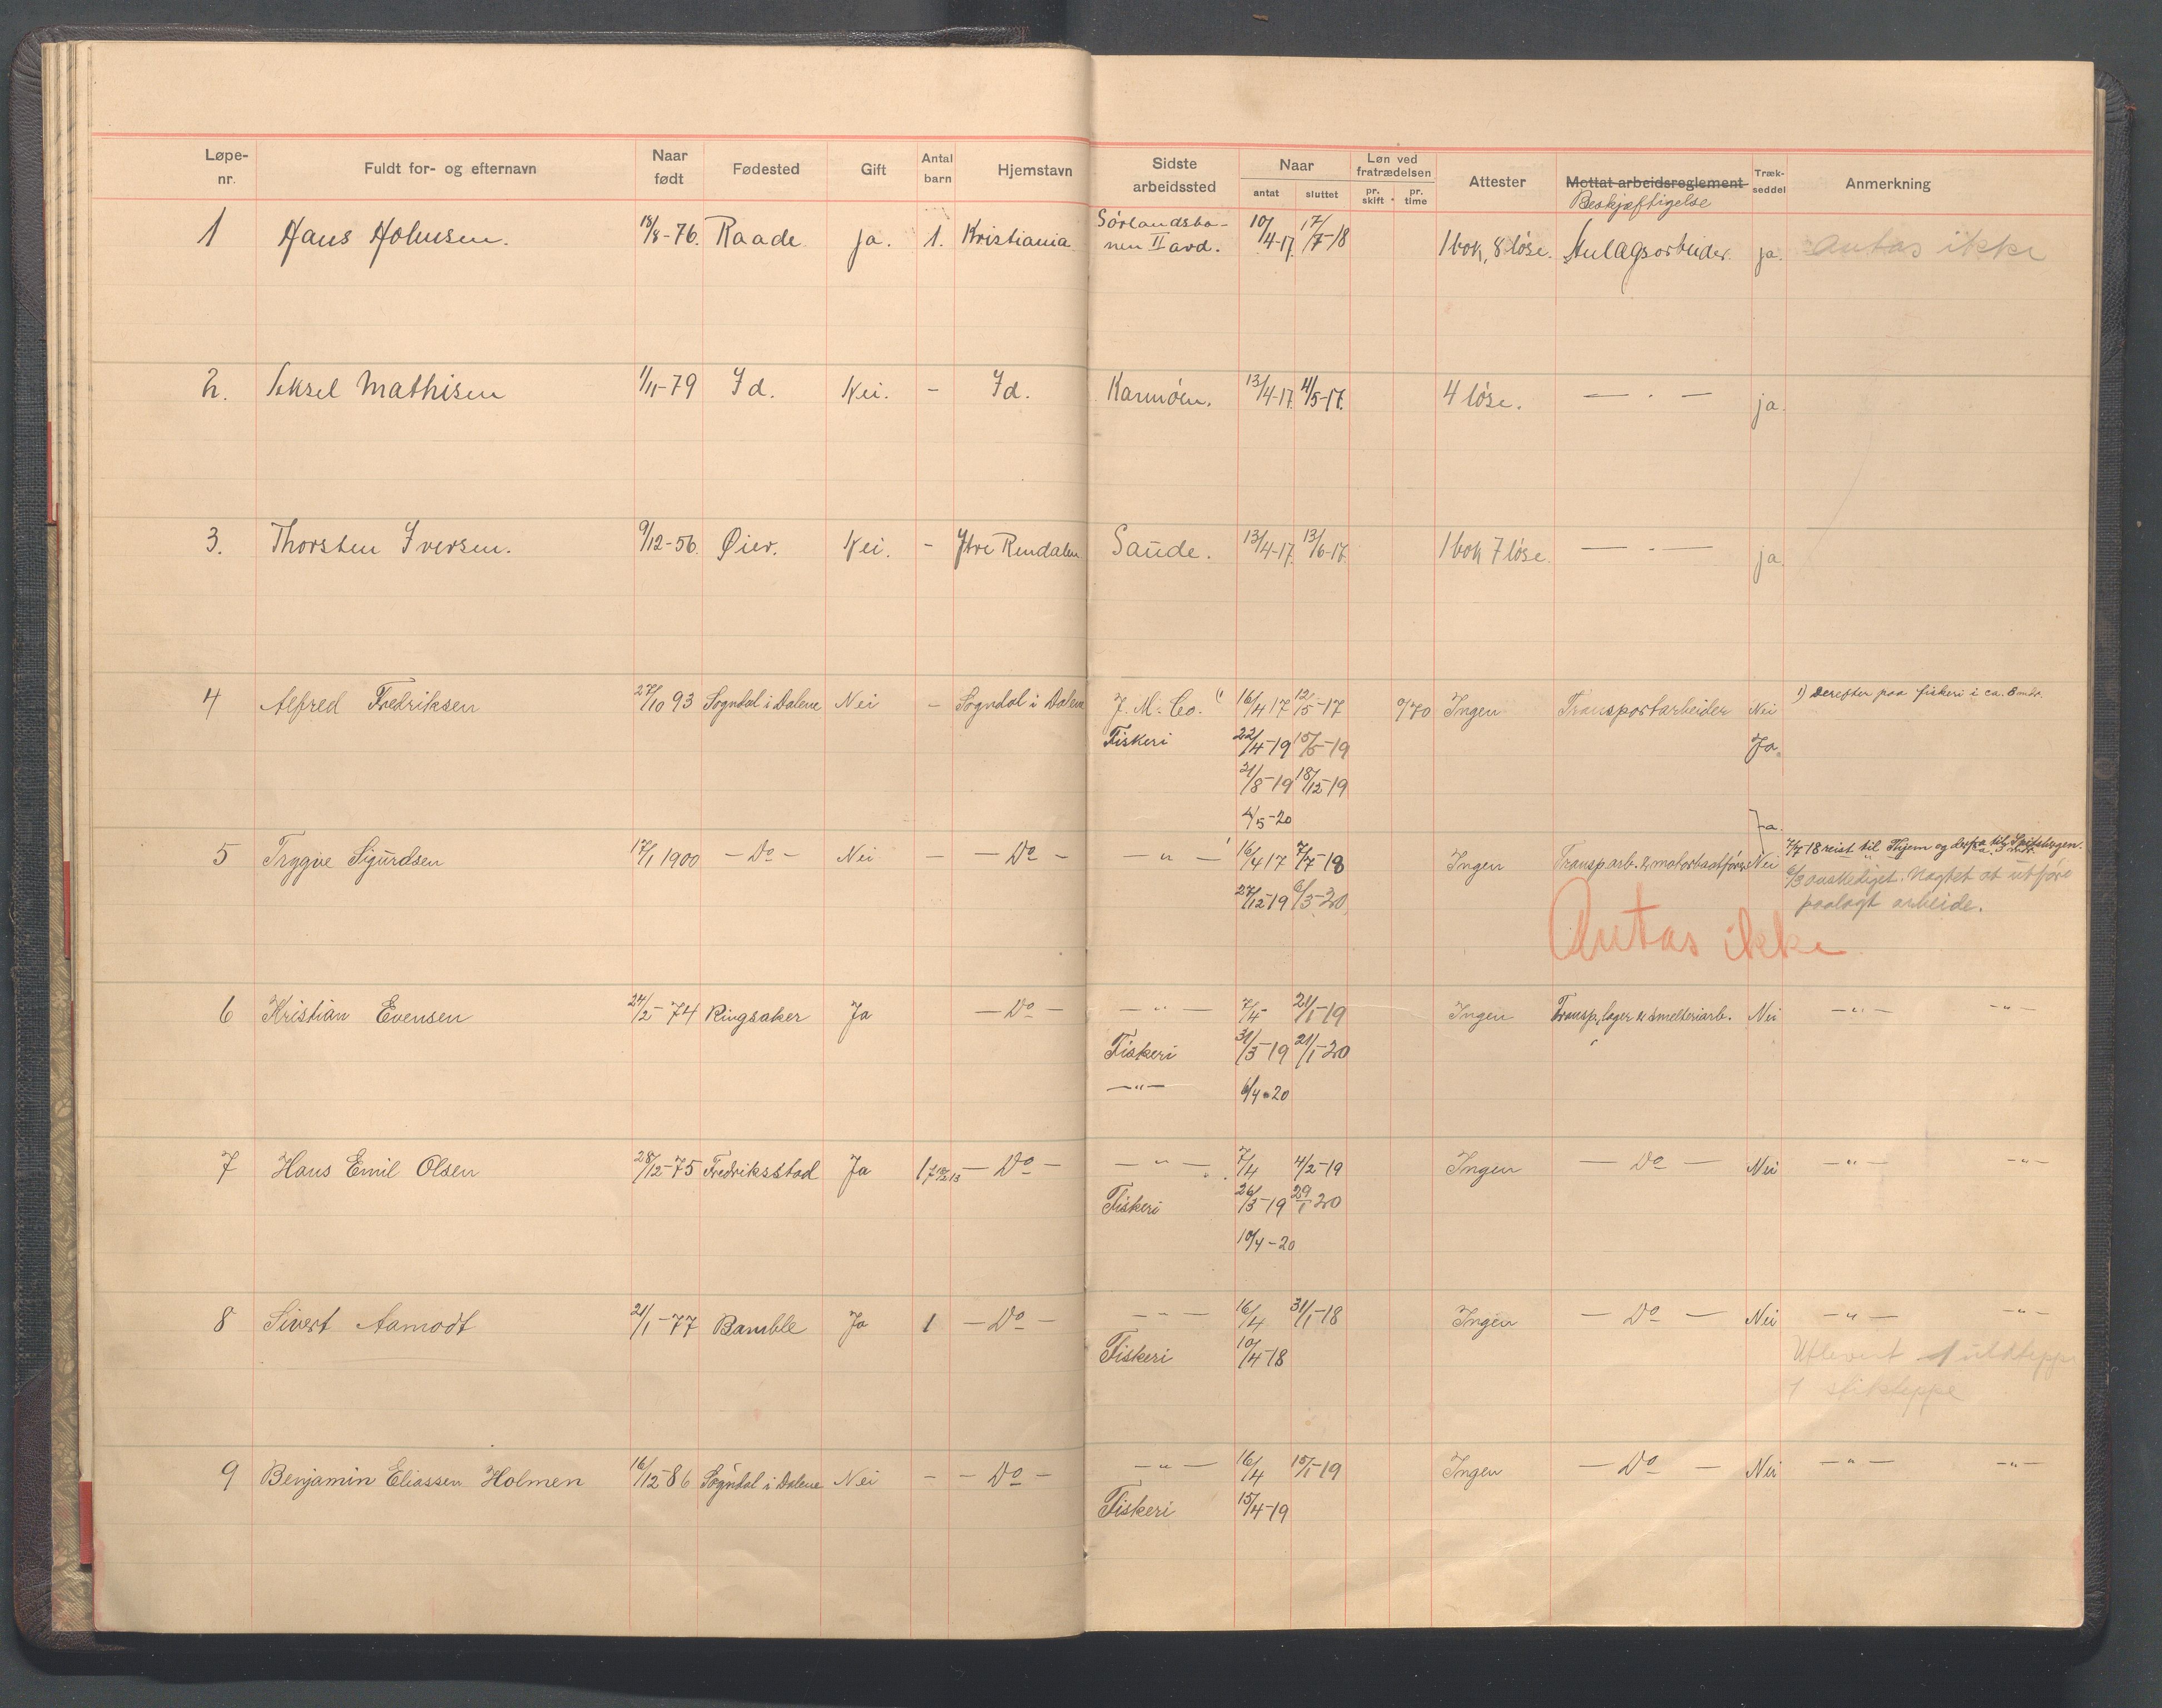 Løpe-nr. Fuldt for- og efternavn Naar født Fødested Gift Antal barn Hjemstavn Sidste arbeidssted Naar antat sluttet Løn ved fratrædelsen pr. skift pr. time Attester Mottat arbeidsreglement Træk-seddel Anmerkning
Beskjæftigelse
1 Hans Holmsen. 18/8-76. Raade ja. 1. Kristiania Sörlandsba-nen II avd. 10/4-17. 17/7-18 1 bok, 8 löse. Anlagsarbeider. ja. Antas ikke
2. Aksel Mathisen 1/11-79 Id. Nei. - Id. Karmöen. 13/4-17. 4/5-17. 4 löse. — . — ja.
3. Thorsten Iversen. 9/12-56. Øier. Nei. - Ytre Rendalen Saude. 13/4-17. 13/6-17. 1 bok 7 löse. — . — ja.
4 Alfred Fredriksen 27/10 93 Sogndal i Dalene Nei - Sogndal i Dalene J. M. Co. 1) 16/4 17 12/5-17 0/70 Ingen Transportarbeider Nei 1) Derefter paa fiskeri i ca. 8 mdr.
Fiskeri 22/4-19 15/5-19 Ja.
21/8-19 18/12-19
4/5-20 Ja.
5 Trygve Sigurdsen 17/1 1900 - Do - Nei - - Do - - " - 16/4 17 7/7-18 Ingen Transp.arb. & motorbaatförer Nei 7/7 18 reist til Hjem og derfra til Spitsbergen.
27/12-19 6/3-20 6/3 avskediget. Nægtet at utföre
paalagt arbeide.
Antas ikke
6 Kristian Evensen 24/2-74 Ringsaker Ja - Do - - " - 7/4- 21/1-19 Ingen Transp, lager & smelteriarb. Nei - " - - " -
Fiskeri 31/3-19 21/1-20
- " - 6/4-20
7 Hans Emil Olsen 28/12-75 Fredriksstad Ja 1 - Do - - " - 7/4 4/2-19 Ingen - Do - Nei - " - - " -
Fiskeri 26/3-19 29/1 20
10/4-20
8 Sivert Aamodt 21/1-77 Bamble Ja 1 - Do - - " - 16/4 31/1-18 Ingen - Do - Nei - " - - " -
Fiskeri 10/4-18 Utlevert 1 uldteppe
1 stikteppe
9 Benjamin Eliassen Holmen 16/12-86 Sogndal i Dalene Nei - - Do - - " - 16/4 15/1-19 Ingen - Do - Nei - " - - " -
Fiskeri 15/4-19